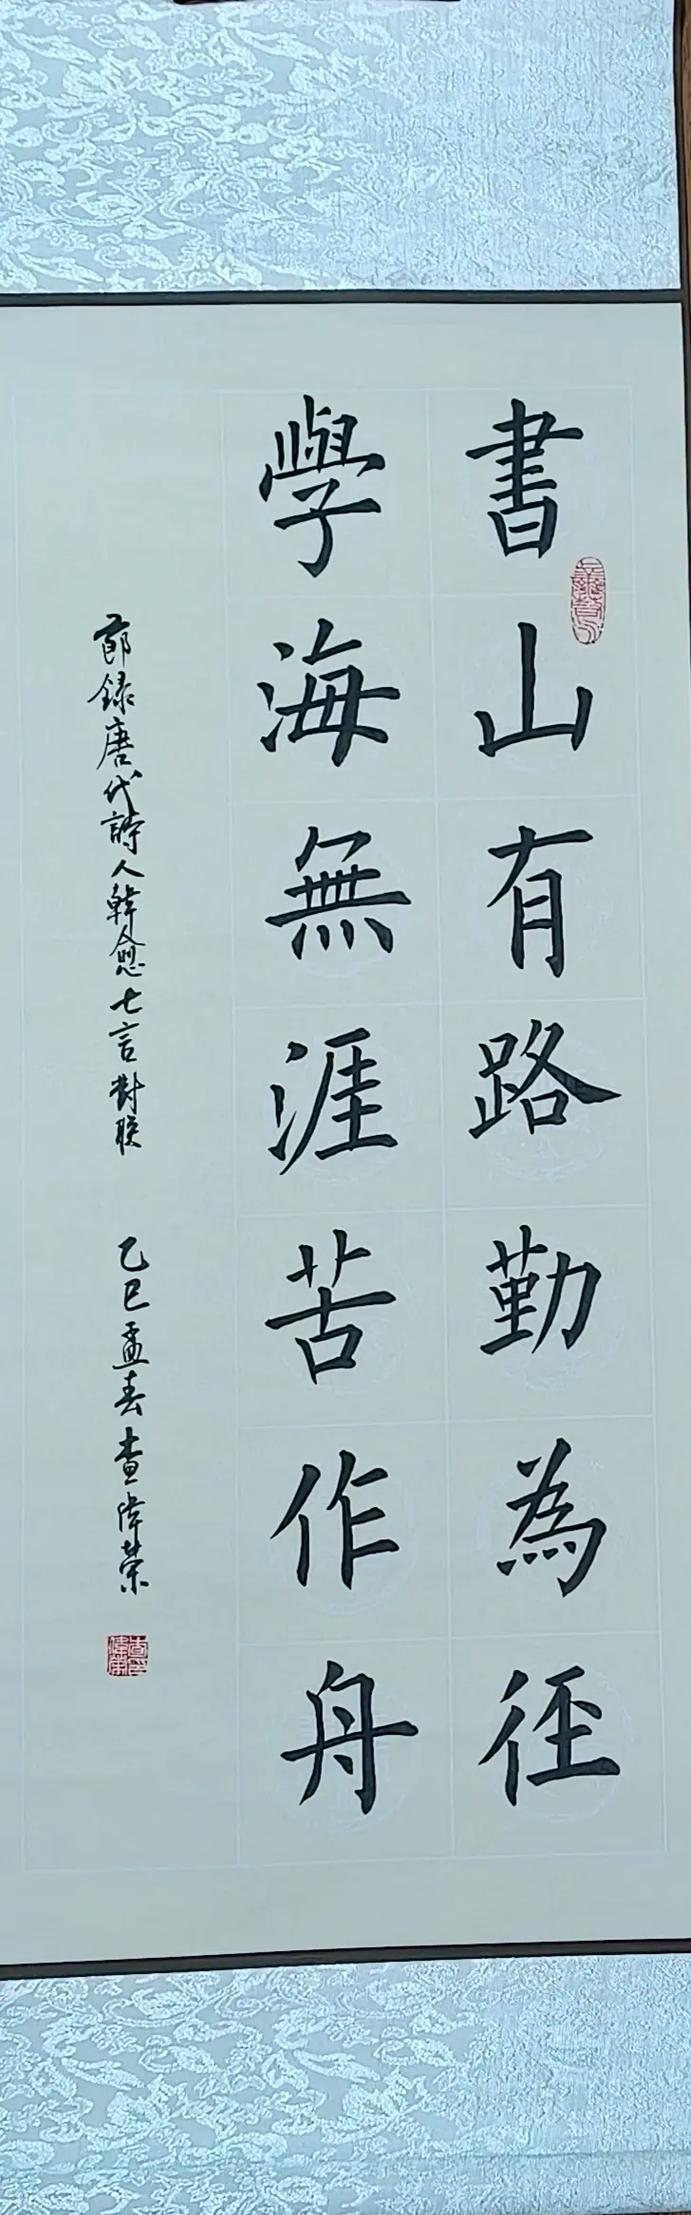 書山有路勤為徑
學海無涯苦作舟
節録唐代詩人韓愈七言對联
乙巳孟春查偉榮